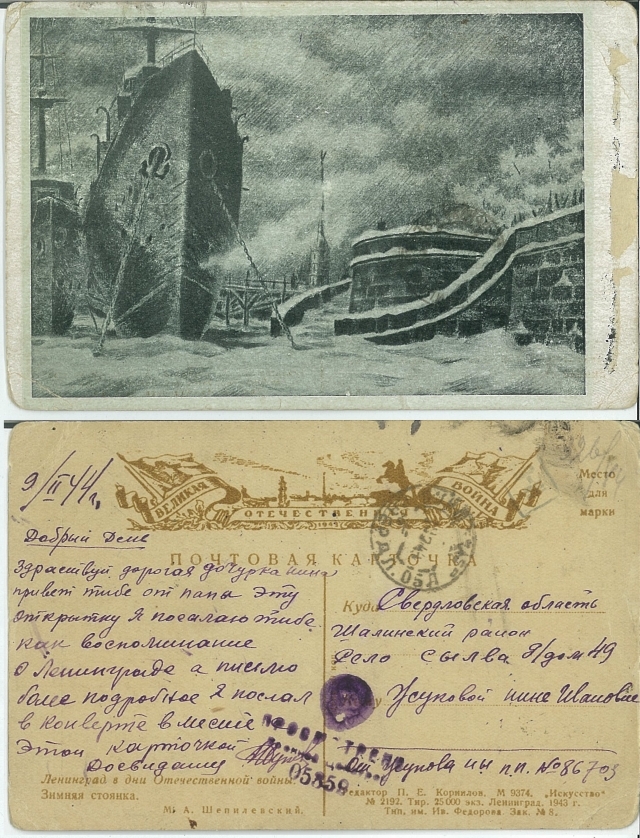 9/II 44 г.
ВЕЛИКАЯ
ОТЕЧЕСТВЕННАЯ
ВОЙНА
Место
для
марки
Добрый День
ПОЧТОВАЯ КАРТОЧКА
Здраствуй дорогая дочурка нина
привет тибе от папы Эту
открытку Я посылаю тибе
как воспоминание
о Ленинграде а письмо
более подробное Я послал
в конверте вместе
этой карточкой
Досвидания
Куда Свердловская область
Шалинский район
село сылва д/дом 49
Усуповой нине Ивановне
От Усупова п.п. № 86703
ПРОСМОТРЕНО
05859
Ленинград в дни Отечественной войны.
Зимняя стоянка.
М. А. Шепилевский.
Редактор П. Е. Корнилов. М 9374. „Искусство“
№ 2192. Тир. 25 000 экз. Ленинград. 1943 г.
Тип. им. Ив. Федорова. Зак. № 8.